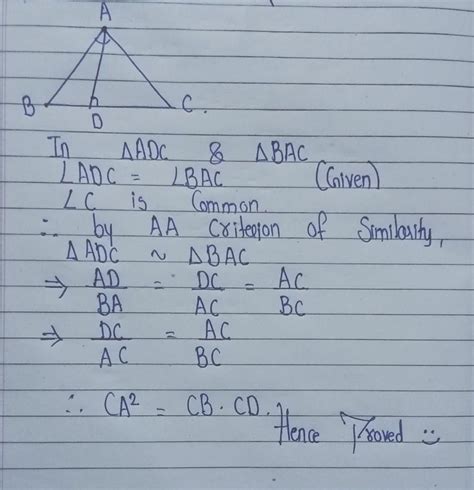 A
B
C.
D
In ΔADC & ΔBAC
∠ADC = ∠BAC (Given)
∠C is Common.
∴ by AA Criterion of Similarity,
ΔADC ~ ΔBAC
⇒ AD/BA = DC/AC = AC/BC
⇒ DC/AC = AC/BC
∴ CA² = CB · CD.
Hence Proved ☺